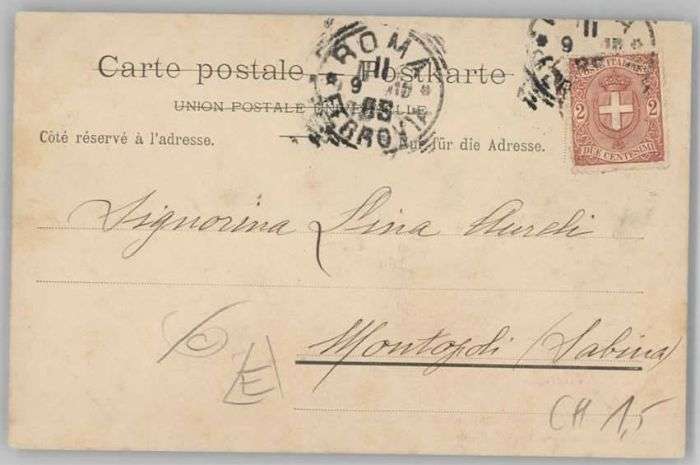 ROMA
11
9
FERROVIA
11
9
POSTE ITALIANE
2 2
DUE CENTESIMI
Carte postale – Postkarte
UNION POSTALE UNIVERSELLE
Côté réservé à l'adresse. Nur für die Adresse.
Signorina Lina Aureli
Montopoli (Sabina)
E
CH 1,5